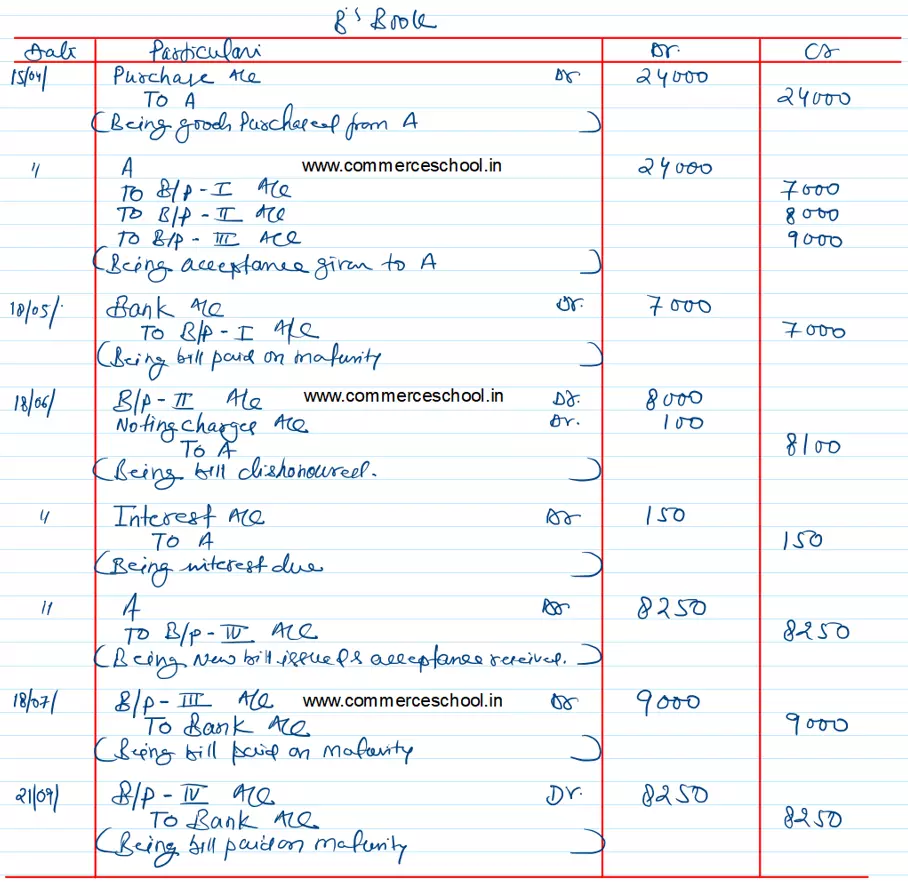 B's Book
Date Particulars Dr. Cr
15/04/ Purchase A/c Dr 24000
To A 24000
(Being goods Purchased from A)
" A www.commerceschool.in 24000
To B/P - I A/c 7000
To B/P - II A/c 8000
To B/P - III A/c 9000
(Being acceptance given to A)
18/05/ Bank A/c Dr. 7000
To B/P - I A/c 7000
(Being bill paid on maturity)
18/06/ B/P - II A/c www.commerceschool.in Dr. 8000
Noting charges A/c Dr. 100
To A 8100
(Being bill dishonoured.)
" Interest A/c Dr 150
To A 150
(Being interest due)
" A Dr 8250
To B/P - IV A/c 8250
(Being New bill issued & acceptance received.)
18/07/ B/P - III A/c www.commerceschool.in Dr 9000
To Bank A/c 9000
(Being bill paid on maturity)
21/09/ B/P - IV A/c Dr. 8250
To Bank A/c 8250
(Being bill paid on maturity)